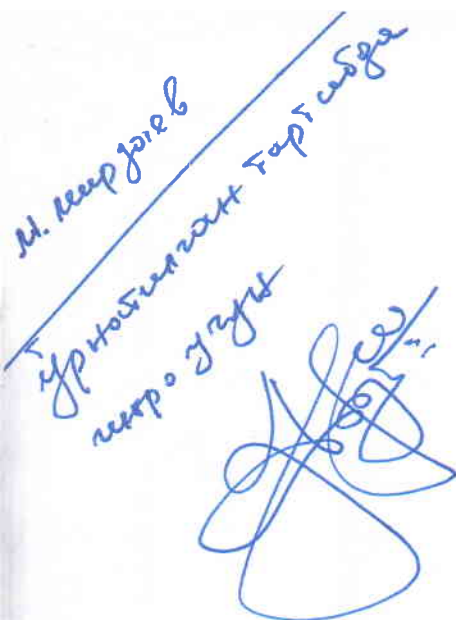 М. Мирзаев
Ўрнатилган тартибда
ижро учун